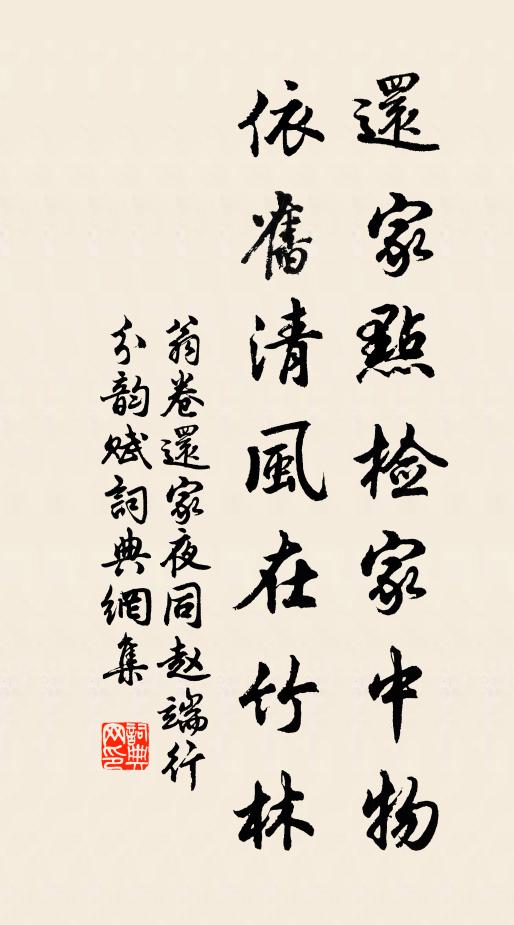 還家點檢家中物
依舊清風在竹林
翁卷還家夜同赵端行
分韵赋詞典網集
詞典網印